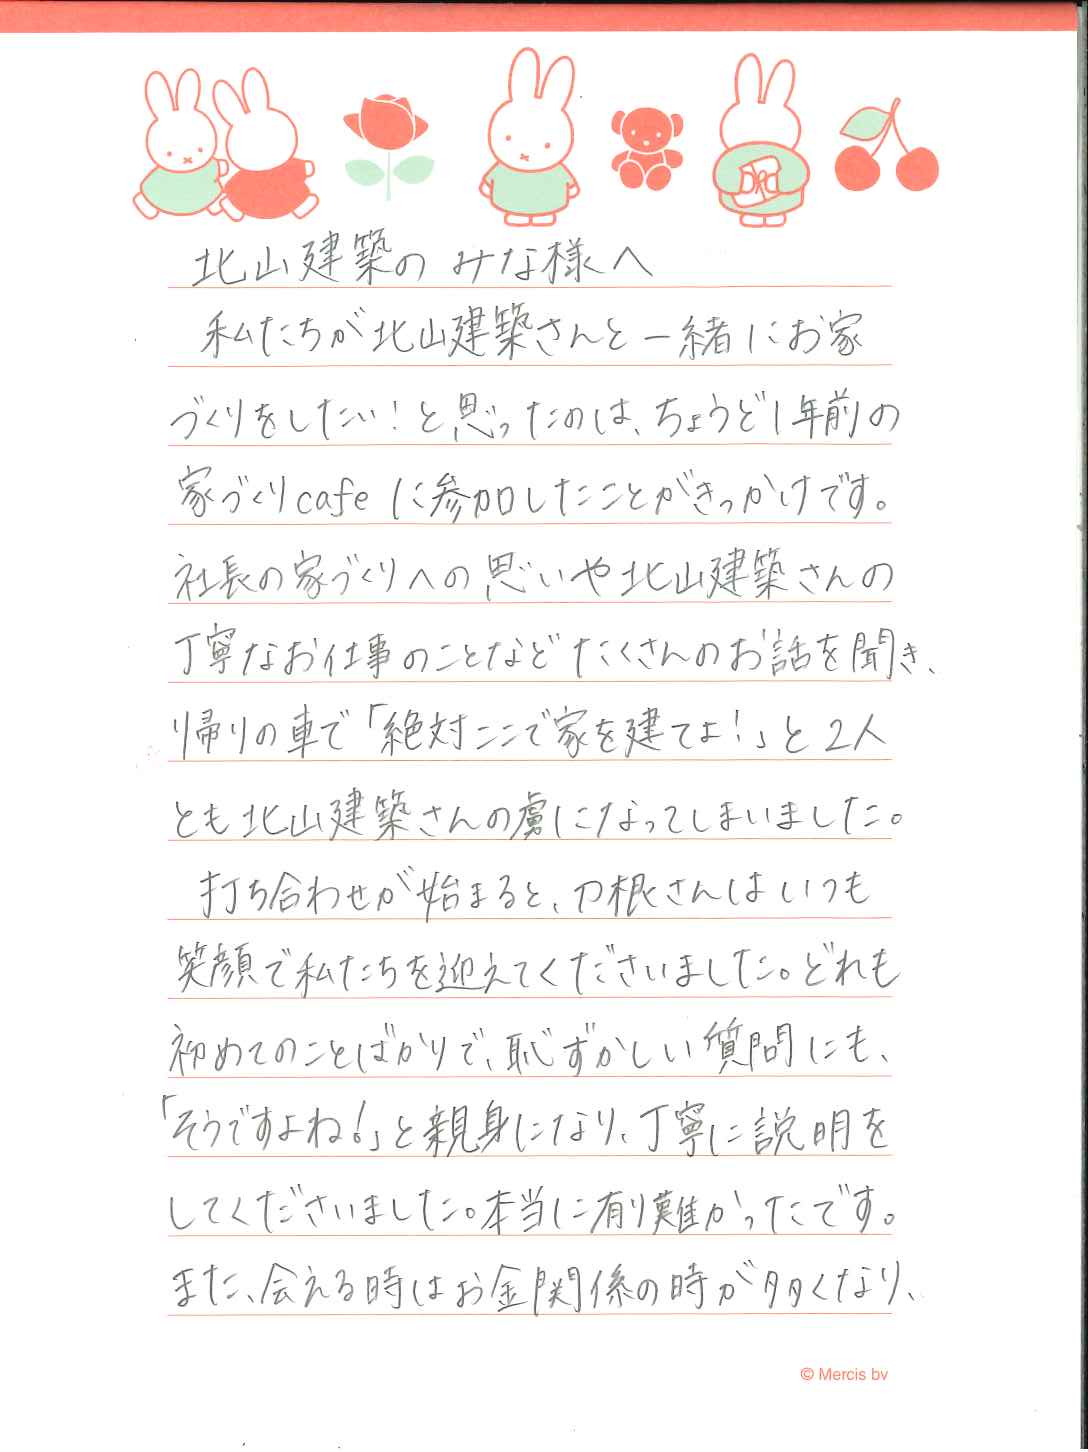 北山建築の みな様へ
私たちが北山建築さんと一緒にお家
づくりをしたい！と思ったのは、ちょうど1年前の
家づくりcafeに参加したことがきっかけです。
社長の家づくりへの思いや北山建築さんの
丁寧なお仕事のことなどたくさんのお話を聞き、
帰りの車で「絶対ここで家を建てよ！」と2人
とも北山建築さんの虜になってしまいました。
打ち合わせが始まると、刀根さんはいつも
笑顔で私たちを迎えてくださいました。どれも
初めてのことばかりで、恥ずかしい質問にも、
「そうですよね！」と親身になり、丁寧に説明を
してくださいました。本当に有り難かったです。
また、会える時はお金関係の時が多くなり、
© Mercis bv